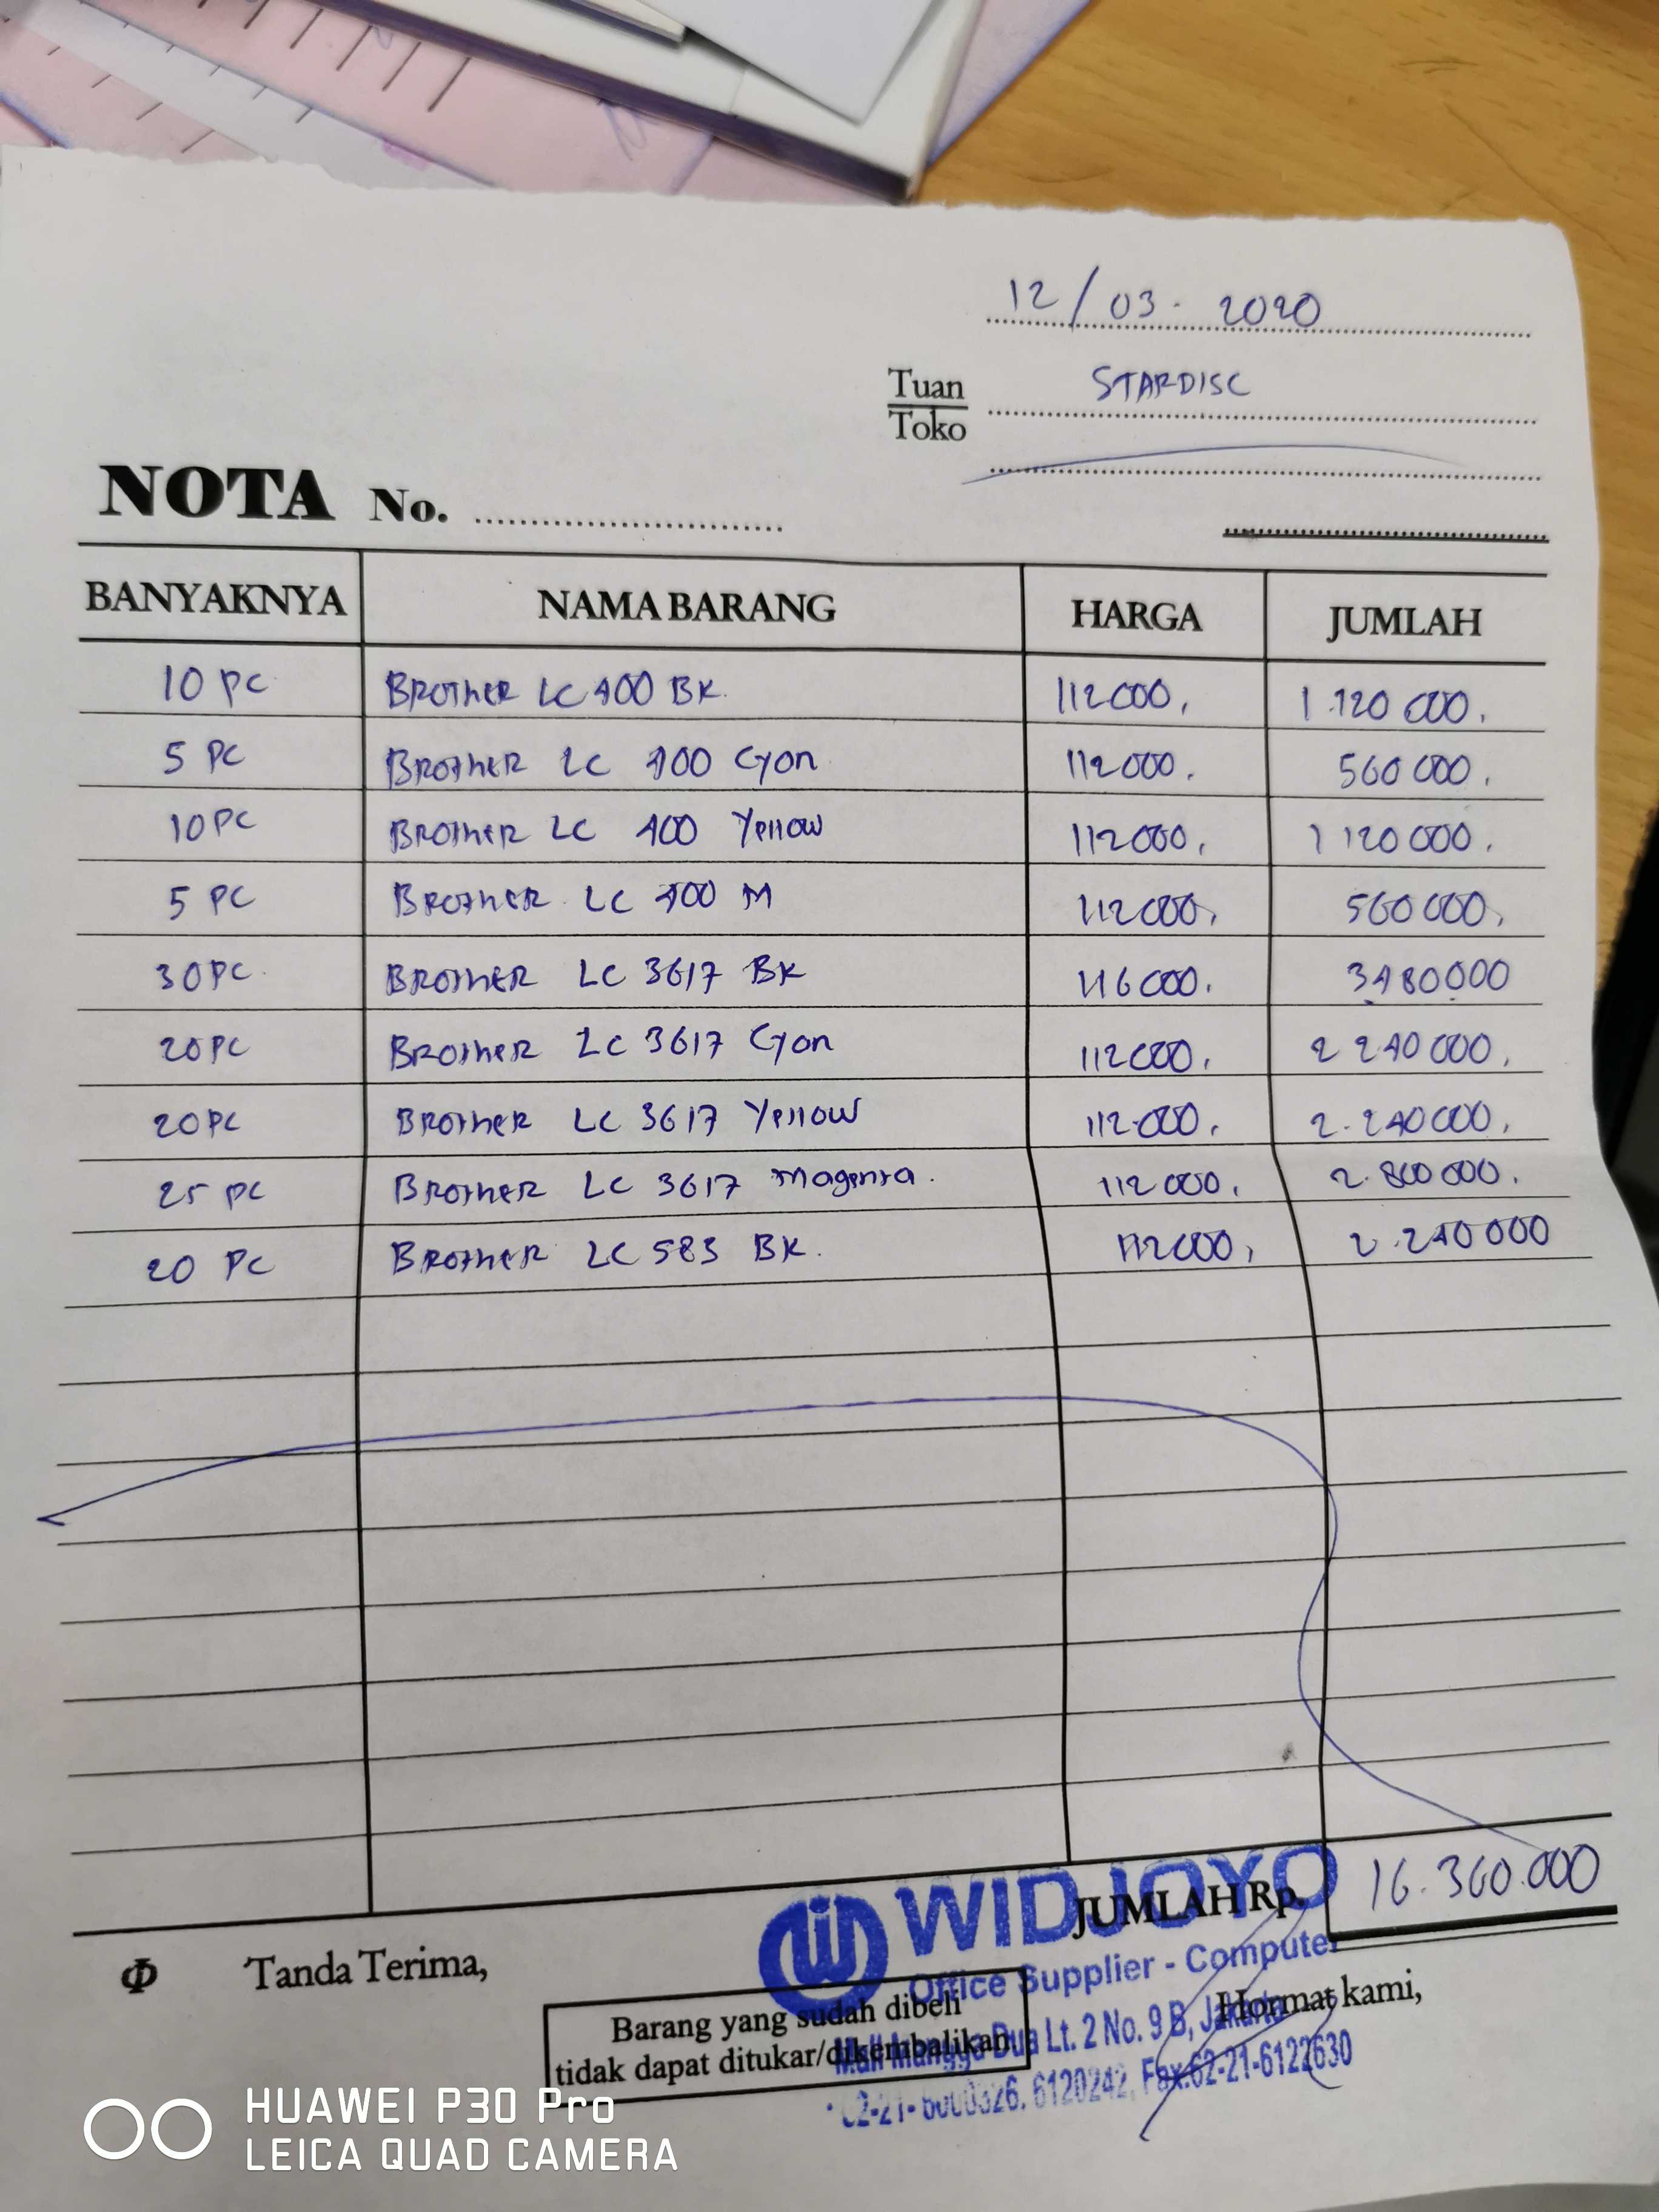 12/03. 2020
Tuan
Toko
STARDISC
NOTA No.
BANYAKNYA NAMA BARANG HARGA JUMLAH
10 PC BROTHER LC 400 BK. 112000, 1.120 000,
5 PC BROTHER LC 400 Cyan 112000. 560 000,
10 PC BROTHER LC 400 Yellow 112000, 1 120 000.
5 PC BROTHER LC 400 M 112000, 560 000,
30 PC. BROTHER LC 3617 BK 116000. 3.480.000
20 PC BROTHER LC 3617 Cyan 112000, 2 240 000,
20 PC BROTHER LC 3617 Yellow 112.000, 2.240 000,
25 PC BROTHER LC 3617 Magenta. 112 000, 2.800 000.
20 PC BROTHER LC 583 BK. 112000, 2.240 000
JUMLAH Rp. 16.360.000
WIDJOYO
Office Supplier - Computer
Mall Mangga Dua Lt. 2 No. 9 B, Jakarta
6120242, Fax.62-21-6122630
Φ Tanda Terima,
Hormat kami,
Barang yang sudah dibeli
tidak dapat ditukar/dikembalikan
HUAWEI P30 Pro
LEICA QUAD CAMERA